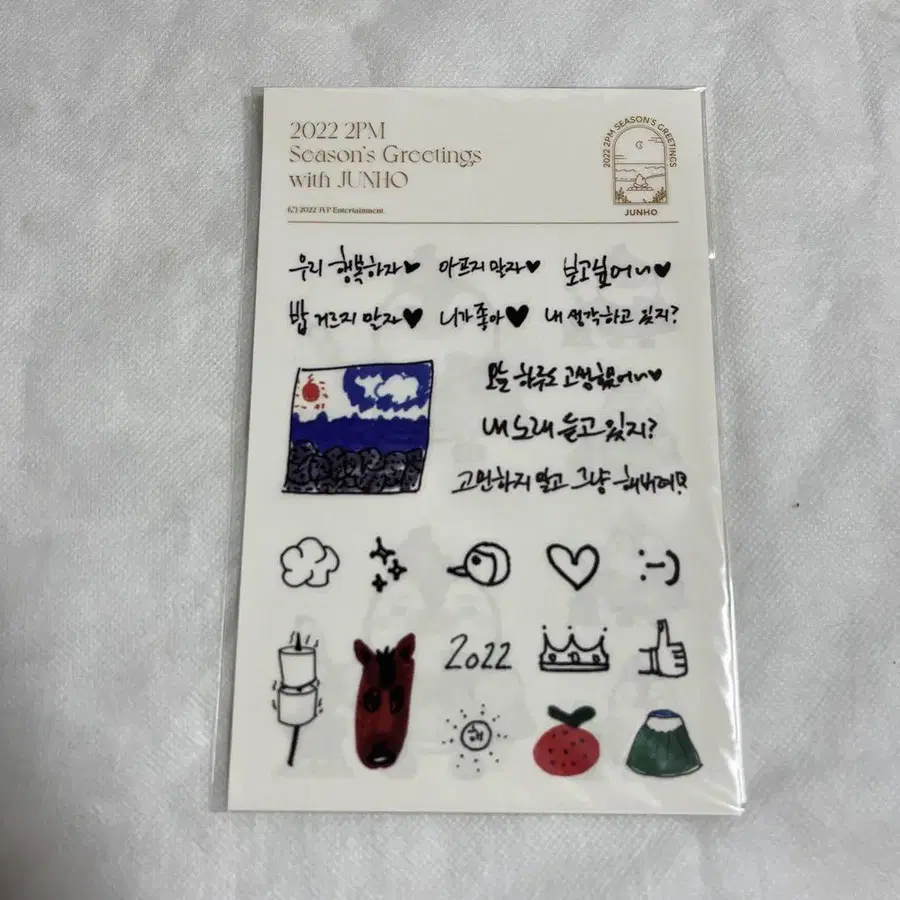 2022 2PM
Season's Greetings
with JUNHO
(C) 2022 JYP Entertainment.
2022 2PM SEASON'S GREETINGS
JUNHO
우리 행복하자♥ 아프지 말자♥ 보고싶어~♥
밥 거르지 말자♥ 니가 좋아♥ 내 생각하고 있지?
오늘 하루도 고생했어~♥
내 노래 듣고 있지?
고민하지 말고 그냥 해버려!?
:-)
2022
해